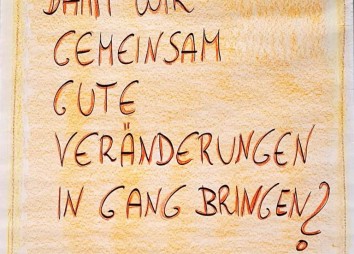 DAMIT WIR
GEMEINSAM
GUTE
VERÄNDERUNGEN
IN GANG BRINGEN?